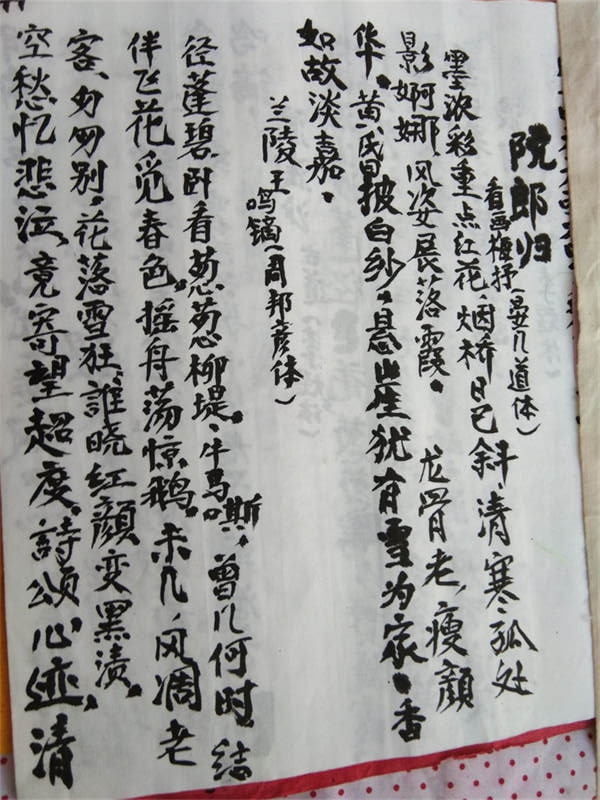 阮郎归
看画梅抒（晏几道体）
墨浓彩重点红花，烟桥日已斜，清寒孤处
影婀娜，风姿展落霞。 龙骨老，瘦颜
华。黄氏昌披白纱。悬崖犹有雪为家。香
如故淡嘉。
兰陵王
鸣镝（周邦彦体）
径蓬碧。卧看葱葱柳堤、牛马嘶，曾几何时，结
伴飞花觅春色。摇舟荡惊鹅。未几，风凋老
客、匆匆别，花落雪狂，誰晓红颜变黑渍，
空愁忆悲泣，竟寄望超度，詩颂心迹，清